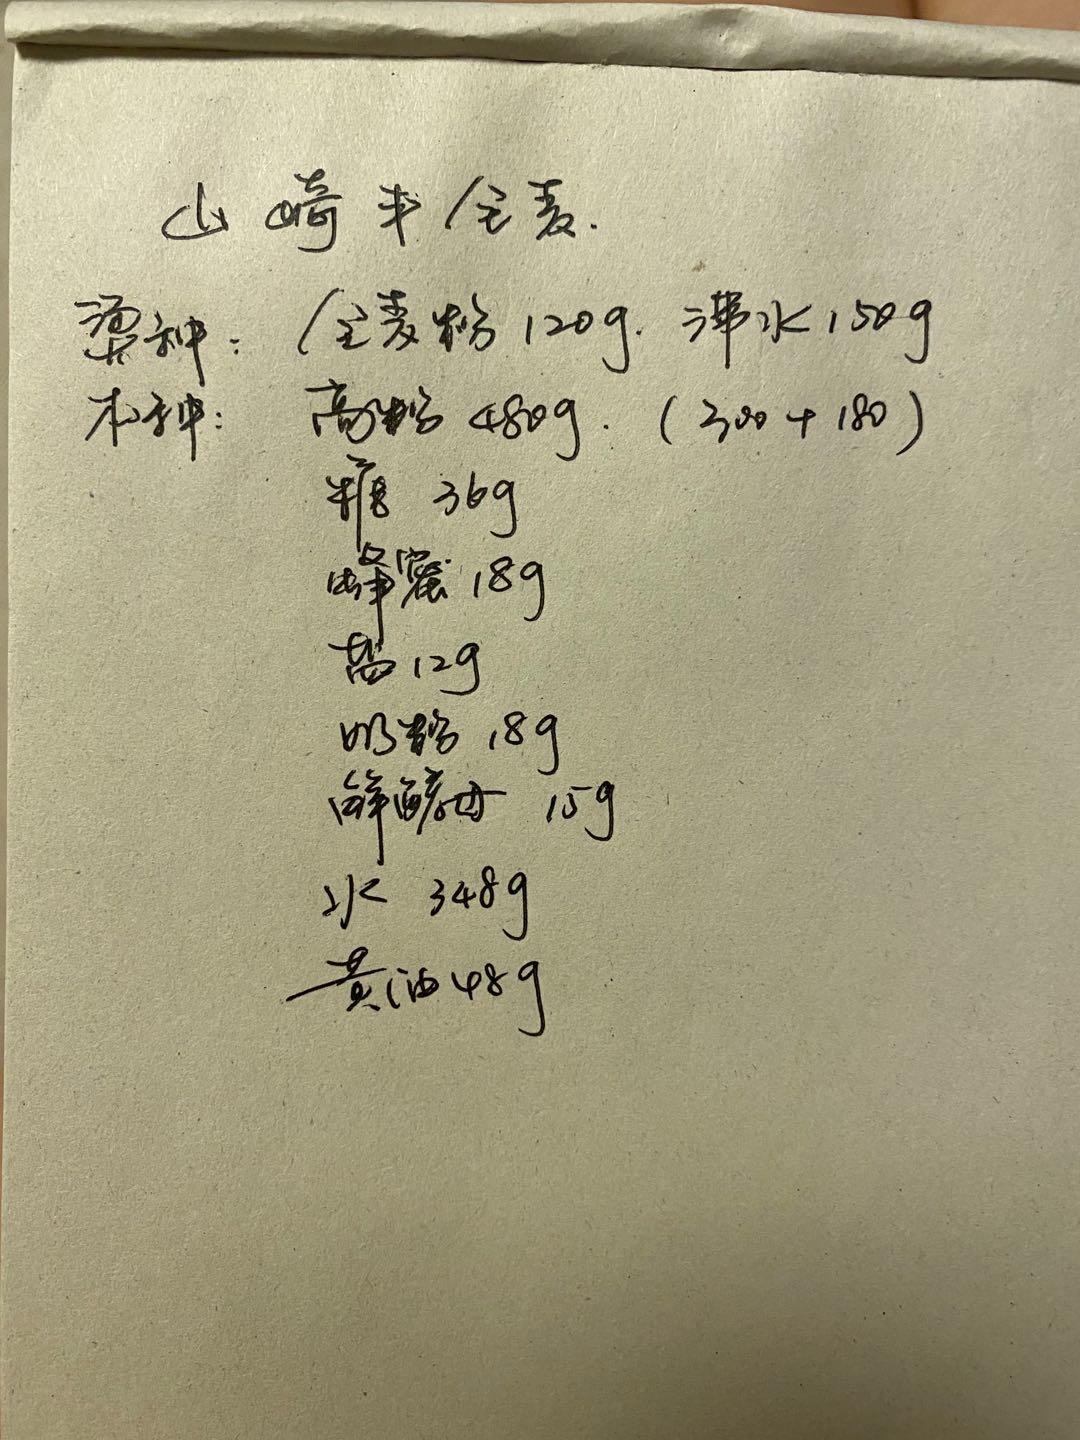 山崎半全麦.
烫种: 全麦粉 120g. 沸水 150g
本种: 高粉 480g. (300+180)
糖 36g
蜂蜜 18g
盐 12g
奶粉 18g
鲜酵母 15g
水 348g
黄油 48g